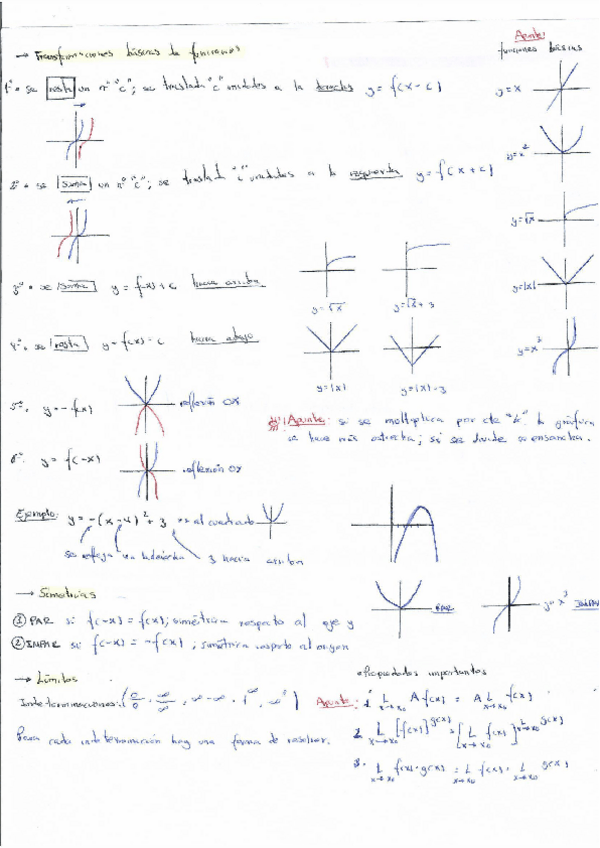 → Transformaciones básicas de funciones
Apunte:
funciones básicas
1º • se resta un nº "c"; se traslada "c" unidades a la derecha y = f(x-c)
y=x
y=x²
2º • se suma un nº "c"; se traslada "c" unidades a la izquierda y = f(x+c)
y=√x
3º • se suma y = f(x)+c hacia arriba
y=√x
y=√x + 3
y=|x|
4º • se resta y = f(x) - c hacia abajo
y=|x|
y=|x|-3
y=x³
5º. y=-f(x)
reflexión OX
Apunte: si se multiplica por cte "k" la gráfica
se hace más estrecha; si se divide se ensancha.
6º. y = f(-x)
reflexión OY
Ejemplo: y = -(x-4)² + 3 al cuadrado
se refleja
3 hacia arriba
→ Simetrías
① PAR si f(-x) = f(x); simétrica respecto al eje y
PAR
y=x³ IMPAR
② IMPAR si f(-x) = -f(x); simétrica respecto al origen
→ Límites
Propiedades importantes
Indeterminaciones: (0/0, ∞/∞, ∞-∞, 1^∞, ∞°)
Apunte: 1. L x→x₀ A·f(x) = A L x→x₀ f(x)
Para cada indeterminación hay una forma de resolver.
2. L x→x₀ [f(x)]^g(x) = [L x→x₀ f(x)]^L x→x₀ g(x)
3. L x→x₀ f(x)·g(x) = L x→x₀ f(x) · L x→x₀ g(x)